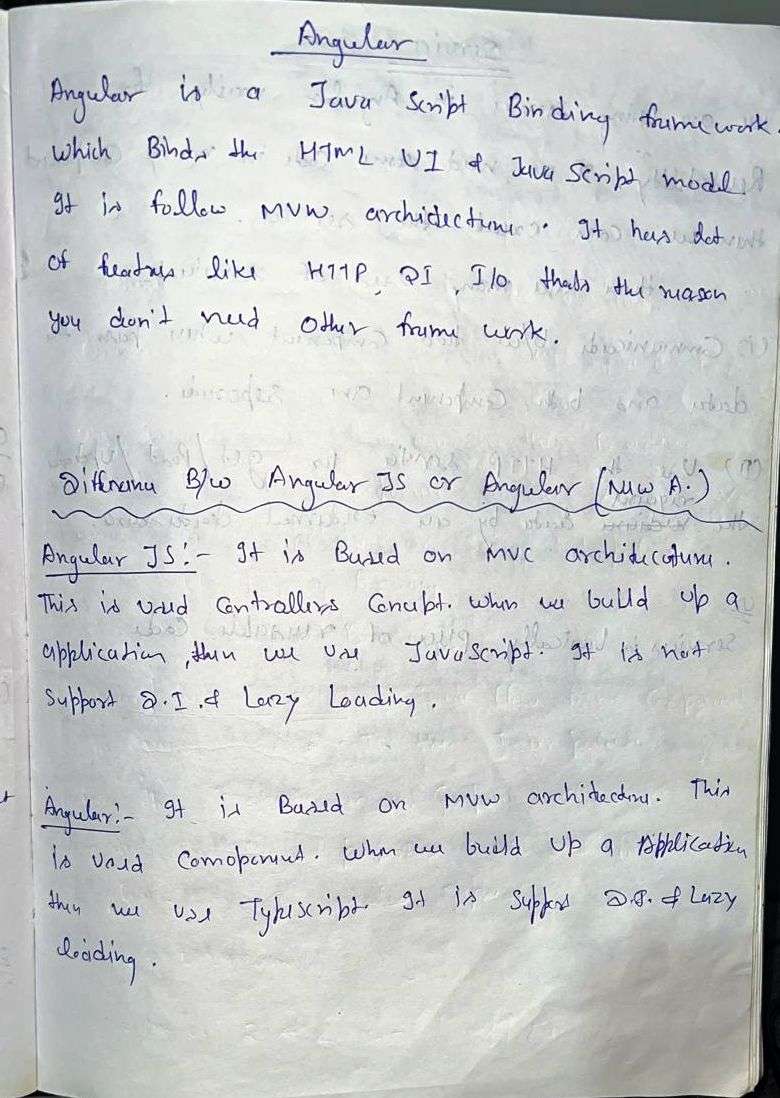 Angular
Angular is a Java Script Binding framework
which Binds the HTML UI & Java Script model.
It is follow MVW architecture. It has lot
of featrus like HTTP, DI, I/O thats the reason
you don't need other frame work.
Differenu B/w Angular JS or Angular (New A.)
Angular JS:- It is Based on MVC architecature.
This is used Controllers Concept. when we build up a
application, then we use JavaScript. It is not
Support D.I. & Lazy Loading.
Angular:- It is Based on MVW architecture. This
is used Comoponent. When we build up a Application
then we use Typescript. It is Support D.I. & Lazy
loading.